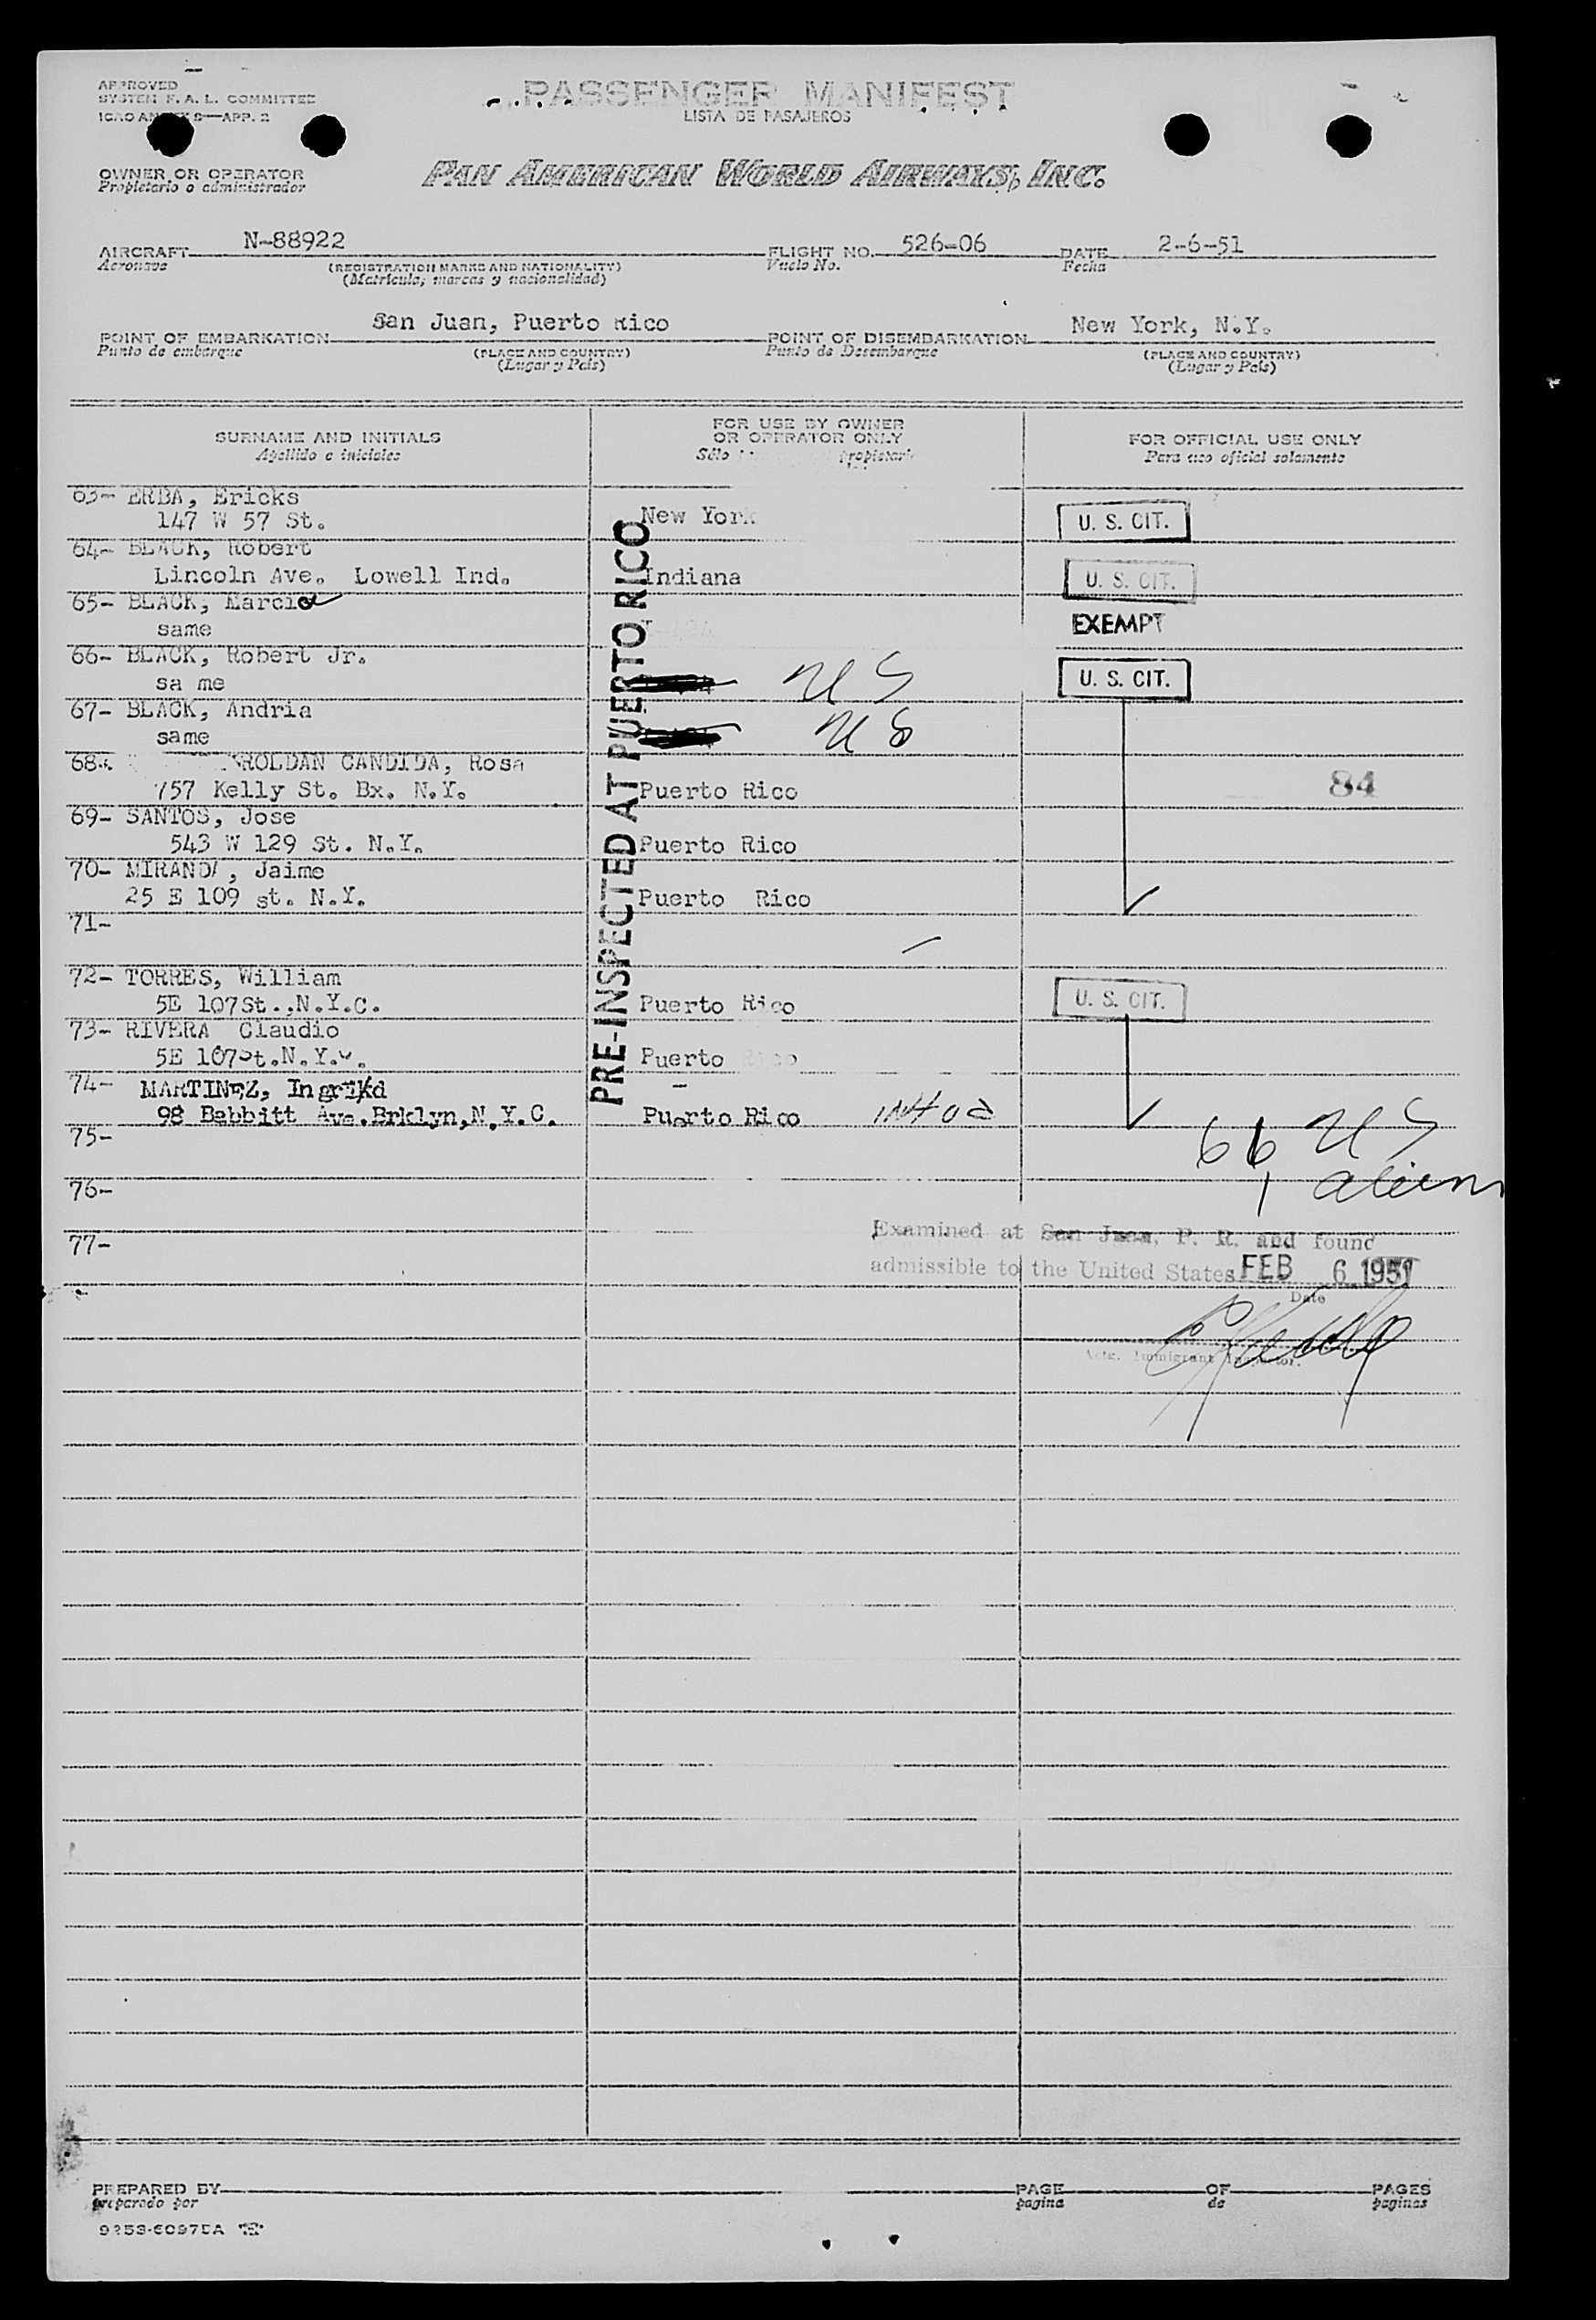 APPROVED
SYSTEM F. A. L. COMMITTEE
ICAO ANNEX 9—APP. 2
PASSENGER MANIFEST
LISTA DE PASAJEROS
OWNER OR OPERATOR
Propietario o administrador
PAN AMERICAN WORLD AIRWAYS, INC.
AIRCRAFT N-88922 FLIGHT NO. 526-06 DATE 2-6-51
Aeronave (REGISTRATION MARKS AND NATIONALITY) Vuelo No. Fecha
(Matrícula, marcas y nacionalidad)
POINT OF EMBARKATION San Juan, Puerto Rico POINT OF DISEMBARKATION New York, N.Y.
Punto de embarque (PLACE AND COUNTRY) Punto de Desembarque (PLACE AND COUNTRY)
(Lugar y País) (Lugar y País)
SURNAME AND INITIALS FOR USE BY OWNER OR OPERATOR ONLY FOR OFFICIAL USE ONLY
Apellido e iniciales Sólo propietario Para uso oficial solamente
PRE-INSPECTED AT PUERTO RICO
63- ERBA, Ericks
147 W 57 St. New York U. S. CIT.
64- BLACK, Robert
Lincoln Ave. Lowell Ind. Indiana U. S. CIT.
65- BLACK, Marcia
same EXEMPT
66- BLACK, Robert Jr.
sa me US U. S. CIT.
67- BLACK, Andria
same US
68- ROLDAN CANDIDA, Rosa
757 Kelly St. Bx. N.Y. Puerto Rico 84
69- SANTOS, Jose
543 W 129 St. N.Y. Puerto Rico
70- MIRANDA, Jaime
25 E 109 st. N.Y. Puerto Rico
71-
72- TORRES, William
5E 107St.,N.Y.C. Puerto Rico U. S. CIT.
73- RIVERA Claudio
5E 107St.N.Y.C. Puerto Rico
74- MARTINEZ, Ingrid
98 Babbitt Ave.Brklyn,N.Y.C. Puerto Rico
75- 66 US
76- 1 alien
77-
Examined at San Juan, P. R. and found
admissible to the United States FEB 6 1951
Date
Actg. Immigrant Inspector.
PREPARED BY PAGE OF PAGES
preparado por pagina de paginas